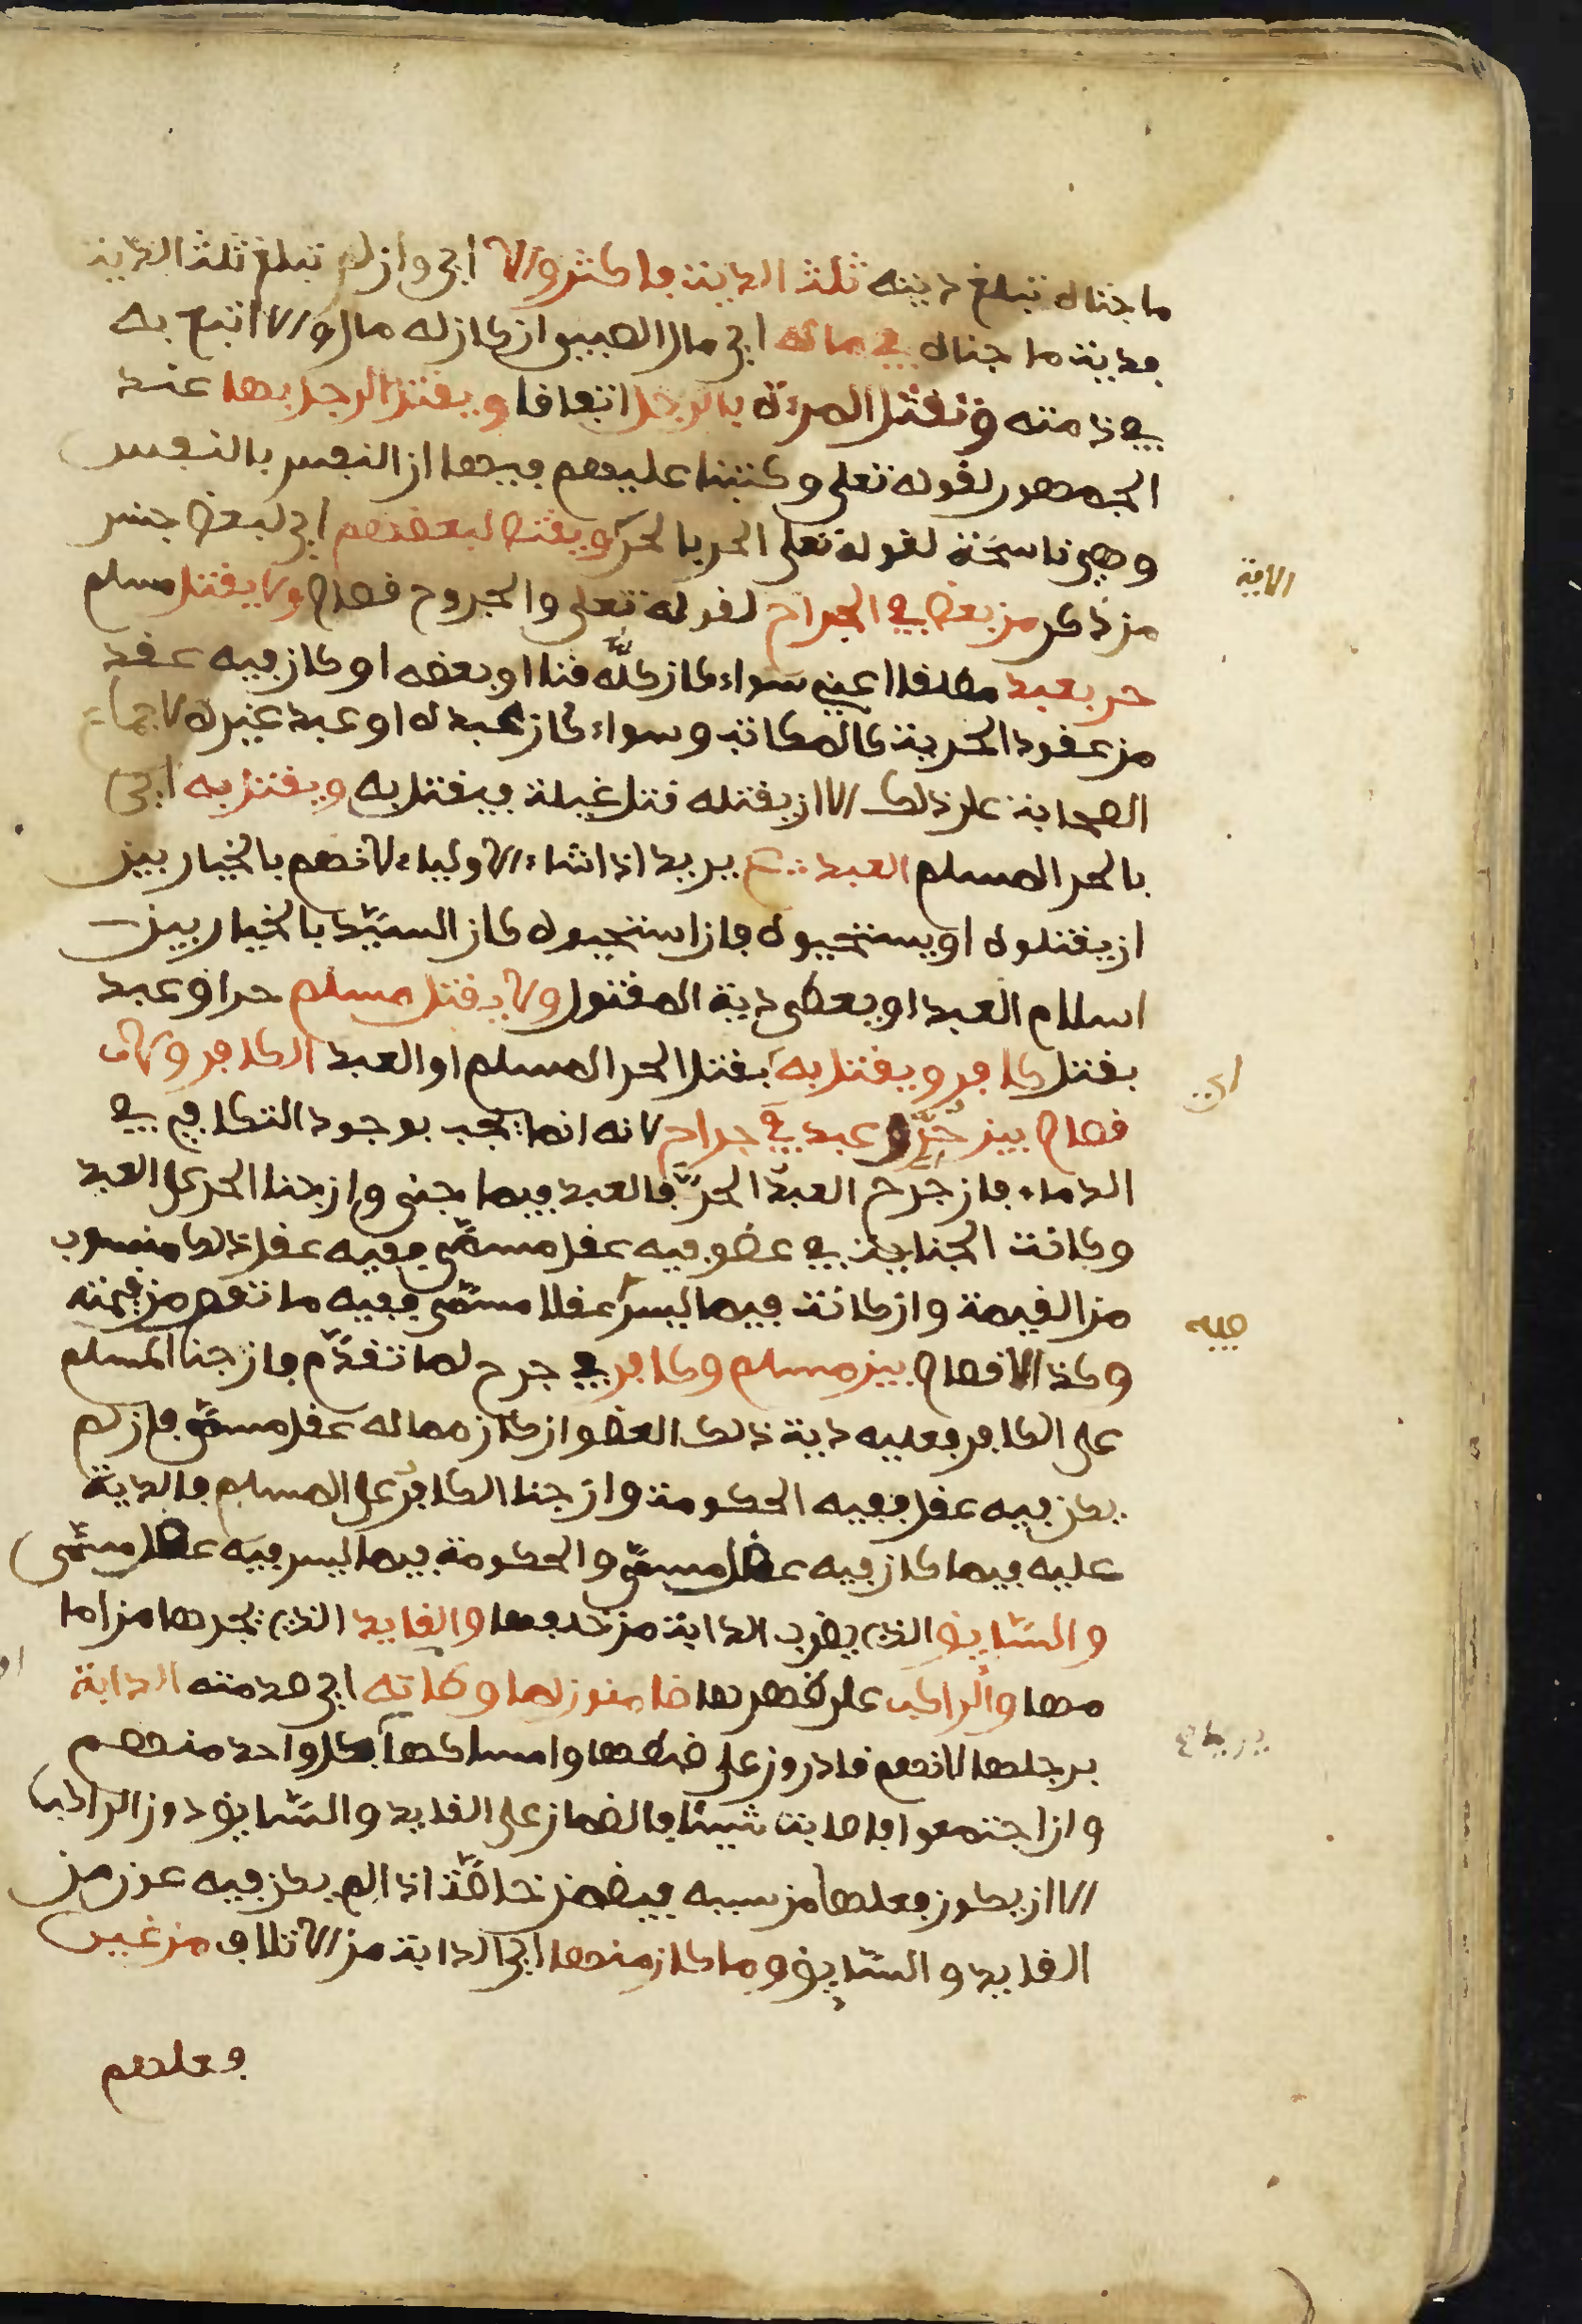 ما جناه تبلغ ديته ثلث الدية فاكثر والا اي وان لم تبلغ ثلث الدية
فدية ما جناه في ماله اي مال الصبي ان كان له مال والا اتبع به
في ذمته وتقتل المرءة بالرجل اتفاقا ويقتل الرجل بها عند
الجمهور لقوله تعلى وكتبنا عليهم فيها ان النفس بالنفس
وهي ناسخة لقوله تعلى الحر بالحر ويقتص لبعضهم اي لبعض جنس
الاية
من ذكر من بعض في الجراح لقوله تعلى والجروح قصاص ولا يقتل مسلم
حر بعبد مطلقا اعني سواء كان كله قنا او بعضه او كان فيه عقد
من عقود الحرية كالمكاتب وسواء كان عبده او عبد غيره لاجماع
الصحابة على ذلك الا ان يقتله قتل غيلة فيقتل به ويقتل به اي
بالحر المسلم العبد يريد اذا شاء الاولياء لانهم بالخيار بين
ان يقتلوه او يستحيوه فان استحيوه كان السيد بالخيار بين
اسلام العبد او يعطى دية المقتول ولا يقتل مسلم حر او عبد
بقتل كافر ويقتل به بقتل الحر المسلم او العبد الكافر ولا
اي
قصاص بين حر وعبد في جراح لانه انما يجب بوجود التكافي في
الدماء فان جرح العبد الحر فالعبد فيما جنى وان جنا الحر على العبد
وكانت الجناية في عضو فيه عقل مسمى ففيه عقل ذلك منسوب
من القيمة وان كانت فيما ليس عقلا مسمى ففيه ما نقص من قيمته
فيه
وكذا لا قصاص بين مسلم وكافر في جرح لما تقدم فان جنا المسلم
على الكافر فعليه دية ذلك العضو ان كان مما له عقل مسمى فان لم
يكن فيه عقل ففيه الحكومة وان جنا الكافر على المسلم فالدية
عليه فيما كان فيه عقل مسمى والحكومة فيما ليس فيه عقل مسمى
والسايق الذي يضرب الدابة من خلفها والقايد الذي يجرها من اما
مها والراكب على ظهرها ضامنون لما وطئته اي صدمته الدابة
برجلها لانهم قادرون على ضبطها وامساكها بكل واحد منهم
وان اجتمعوا فاصابت شيئا فالضمان على القايد والسايق دون الراكب
الا ان يكون فعلها من سببه فيضمن خاصة اذا لم يكن فيه عون من
القايد والسايق وما كان منها اي الدابة من الاتلاف من غير
فعلهم